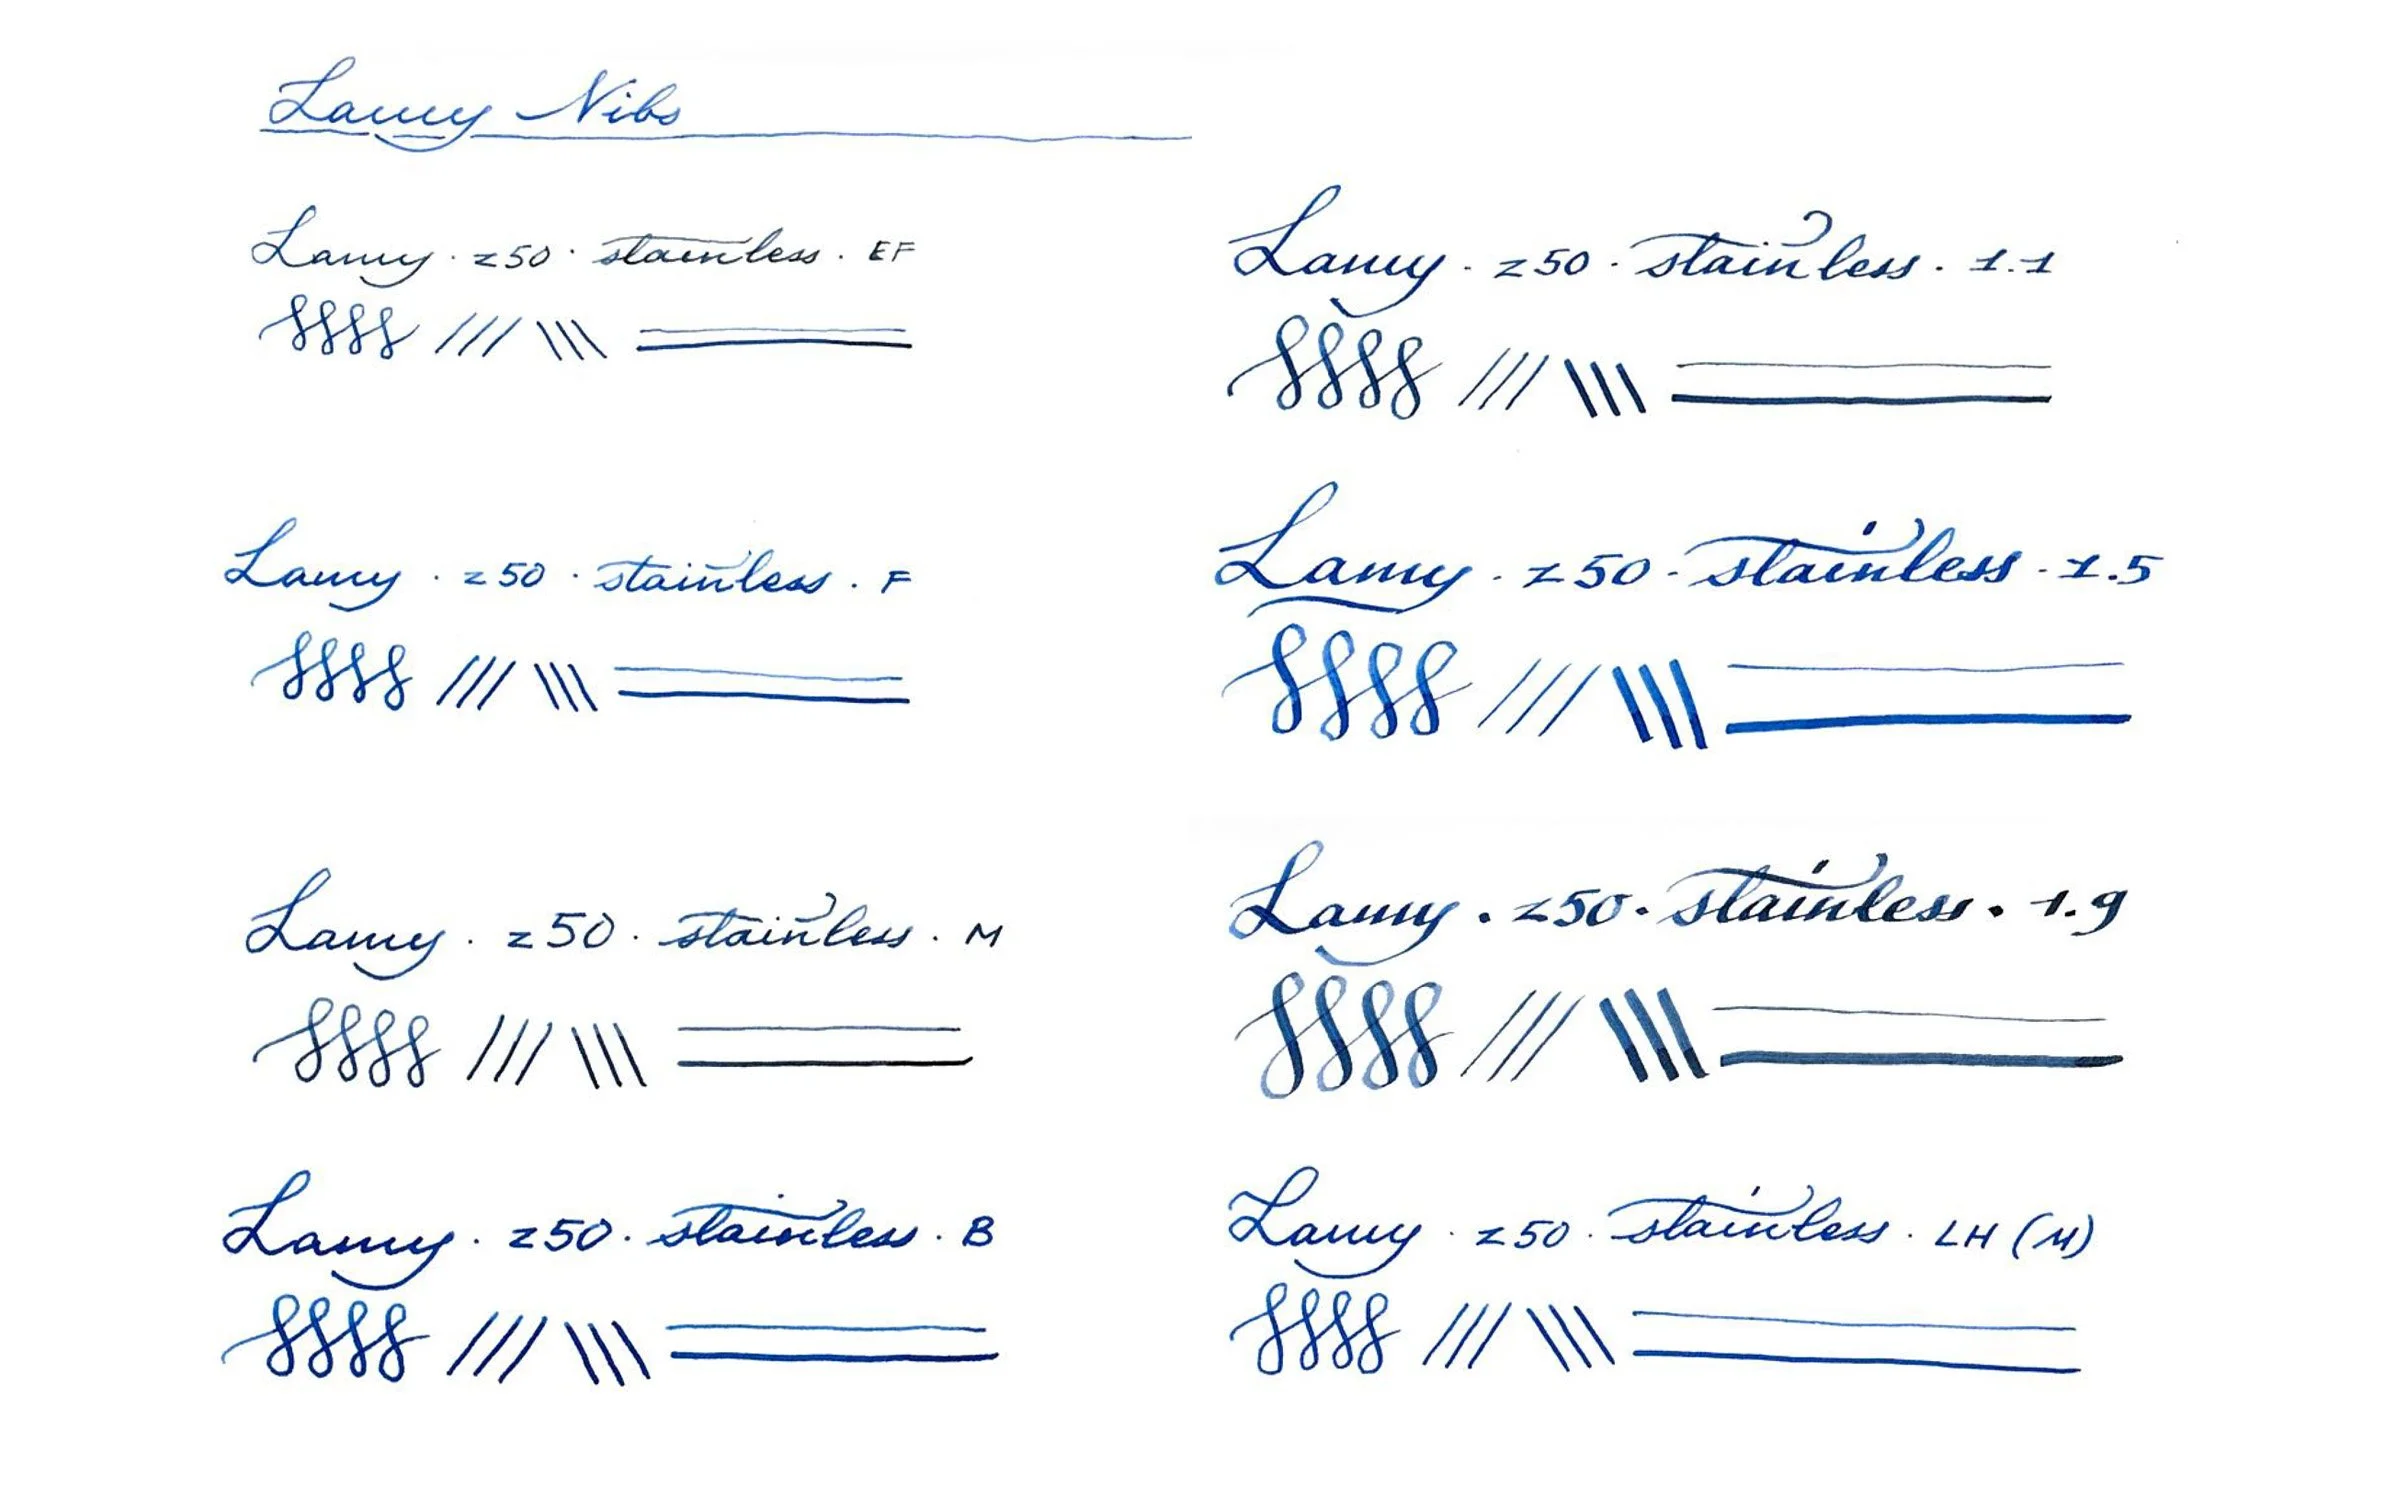 Lamy Nibs
Lamy · z50 · stainless · EF
Lamy · z50 · stainless · F
Lamy · z50 · stainless · M
Lamy · z50 · stainless · B
Lamy · z50 · stainless · 1.1
Lamy · z50 · stainless · 1.5
Lamy · z50 · stainless · 1.9
Lamy · z50 · stainless · LH (M)